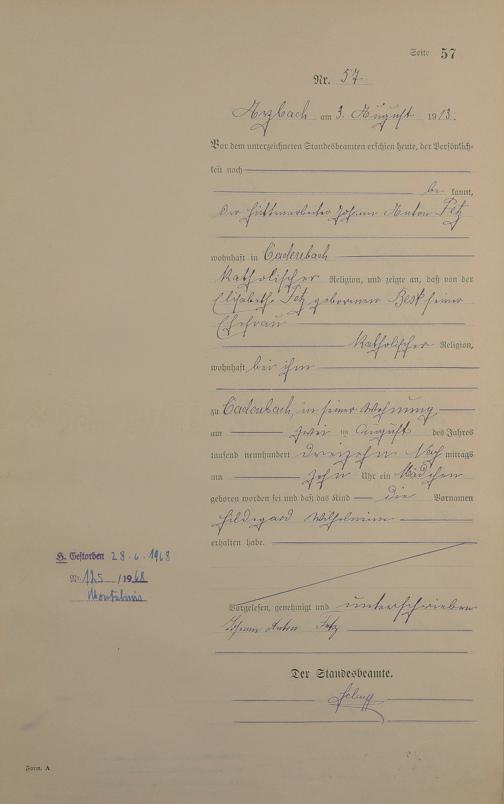 Seite 57
Nr. 57.
Arzbach am 3. August 1913.
Vor dem unterzeichneten Standesbeamten erschien heute, der Persönlich-
keit nach
be kannt,
der Hüttenarbeiter Johann Anton Fetz
wohnhaft in Cadenbach
katholischer Religion, und zeigte an, daß von der
Elisabeth Fetz geborenen Best seiner
Ehefrau
katholischer Religion,
wohnhaft bei ihm
zu Cadenbach, in seiner Wohnung
am zwei ten August des Jahres
tausend neunhundert dreizehn Nach mittags
um zehn Uhr ein Mädchen
geboren worden sei und daß das Kind die Vornamen
Hildegard Wilhelmine
erhalten habe.
H. Gestorben 28.6.1968
Nr. 125 /1968
Montabaur
Vorgelesen, genehmigt und unterschrieben
Johann Anton Fetz
Der Standesbeamte.
Form. A